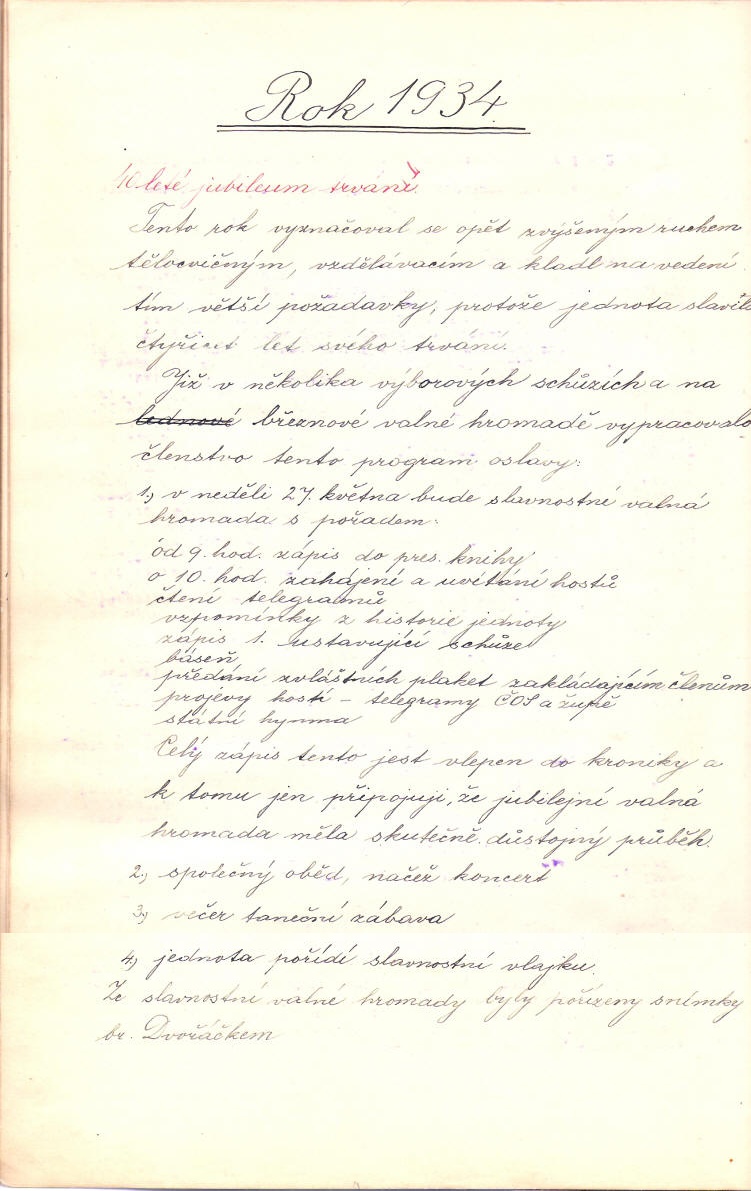 Rok 1934.
40 leté jubileum trvání.
Tento rok vyznačoval se opět zvýšeným ruchem
tělocvičným, vzdělávacím a kladl na vedení
tím větší požadavky, protože jednota slavila
čtyřicet let svého trvání.
Již v několika výborových schůzích a na
lednové březnové valné hromadě vypracovalo
členstvo tento program oslavy:
1.) v neděli 27. května bude slavnostní valná
hromada s pořadem:
od 9. hod. zápis do pres. knihy
o 10. hod. zahájení a uvítání hostů
čtení telegramů
vzpomínky z historie jednoty
zápis 1. ustavující schůze
báseň
předání zvláštních plaket zakládajícím členům
projevy hostí – telegramy ČOS a župě
státní hymna
Celý zápis tento jest vlepen do kroniky a
k tomu jen připojuji, že jubilejní valná
hromada měla skutečně důstojný průběh.
2.) společný oběd, načež koncert
3.) večer taneční zábava
4.) jednota pořídí slavnostní vlajku.
Ze slavnostní valné hromady byly pořízeny snímky
br. Dvořáčkem